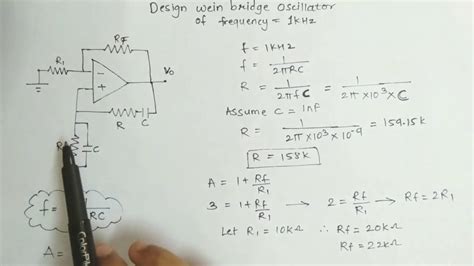 Design wein bridge oscillator
of frequency = 1kHz
R1
RF
V0
R
C
R
C
f = 1 / RC
A =
f = 1kHz
f = 1 / 2πRC
R = 1 / 2πfC = 1 / 2π×10³×C
Assume C = 1nf
R = 1 / 2π×10³×10⁻⁹ = 159.15k
R = 158k
A = 1 + Rf / R1
3 = 1 + Rf / R1 → 2 = Rf / R1 → Rf = 2R1
Let R1 = 10kΩ ∴ Rf = 20kΩ
Rf = 22kΩ